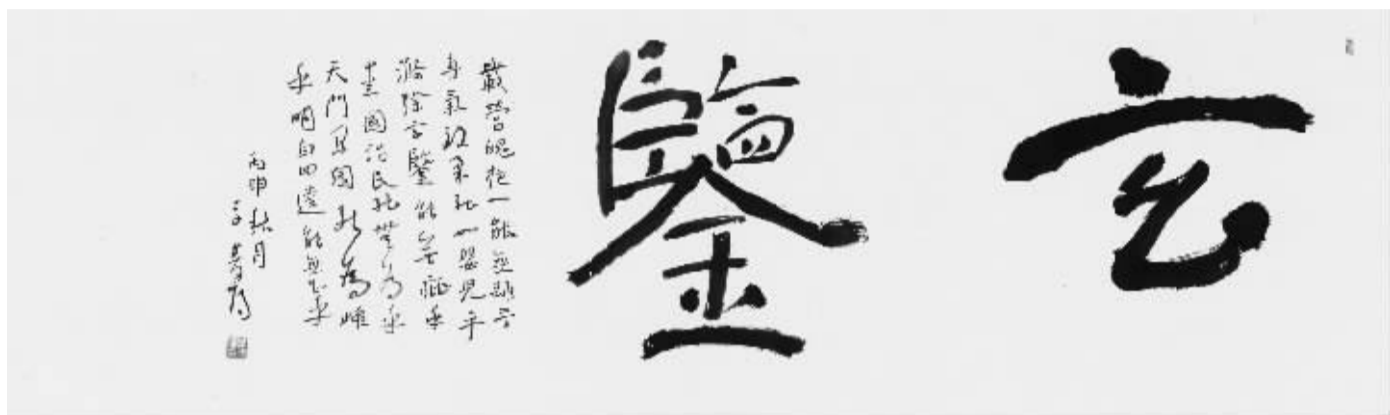 玄鑒
載營魄抱一能無離乎
專氣致柔能如嬰兒乎
滌除玄鑒能無疵乎
愛國治民能無為乎
天門開闔能為雌
乎明白四達能無知乎
丙申秋月